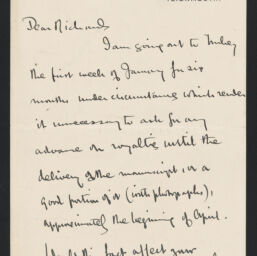 Dear Richards
I am going out to Turkey
the first week of January for six
months under circumstances which render
it unnecessary to ask for any
advance on royalties until the
delivery of the manuscript, or a
good portion of it (with photographs),
approximately the beginning of April.
this fact affect your